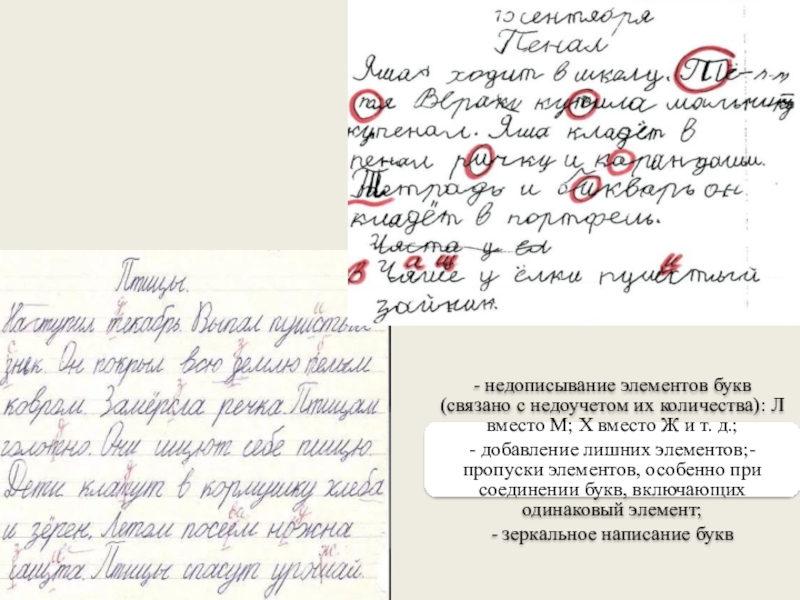 10 сентября
Пенал
Яша ходит в школу.
купила
купенал. Яша кладёт в
пенал ричку и карандаши.
Тетрадь и бикварь он
кладёт в портфель.
Часта у
В а ш и
Чяше у ёлки пушистый
зайкин.
Птицы.
Наступил текабрь. Выпал пушистый
знек. Он покрыл всю землю пелым
ковром. Замёрсла речка. Птицам
голотно. Они ищют себе пищю.
Дети клатут в кормушку хлеба
и зёрен. Летом посеем нужна
сащита. Птицы спасут урошай.
- недописывание элементов букв
(связано с недоучетом их количества): Л
вместо М; Х вместо Ж и т. д.;
- добавление лишних элементов;-
пропуски элементов, особенно при
соединении букв, включающих
одинаковый элемент;
- зеркальное написание букв